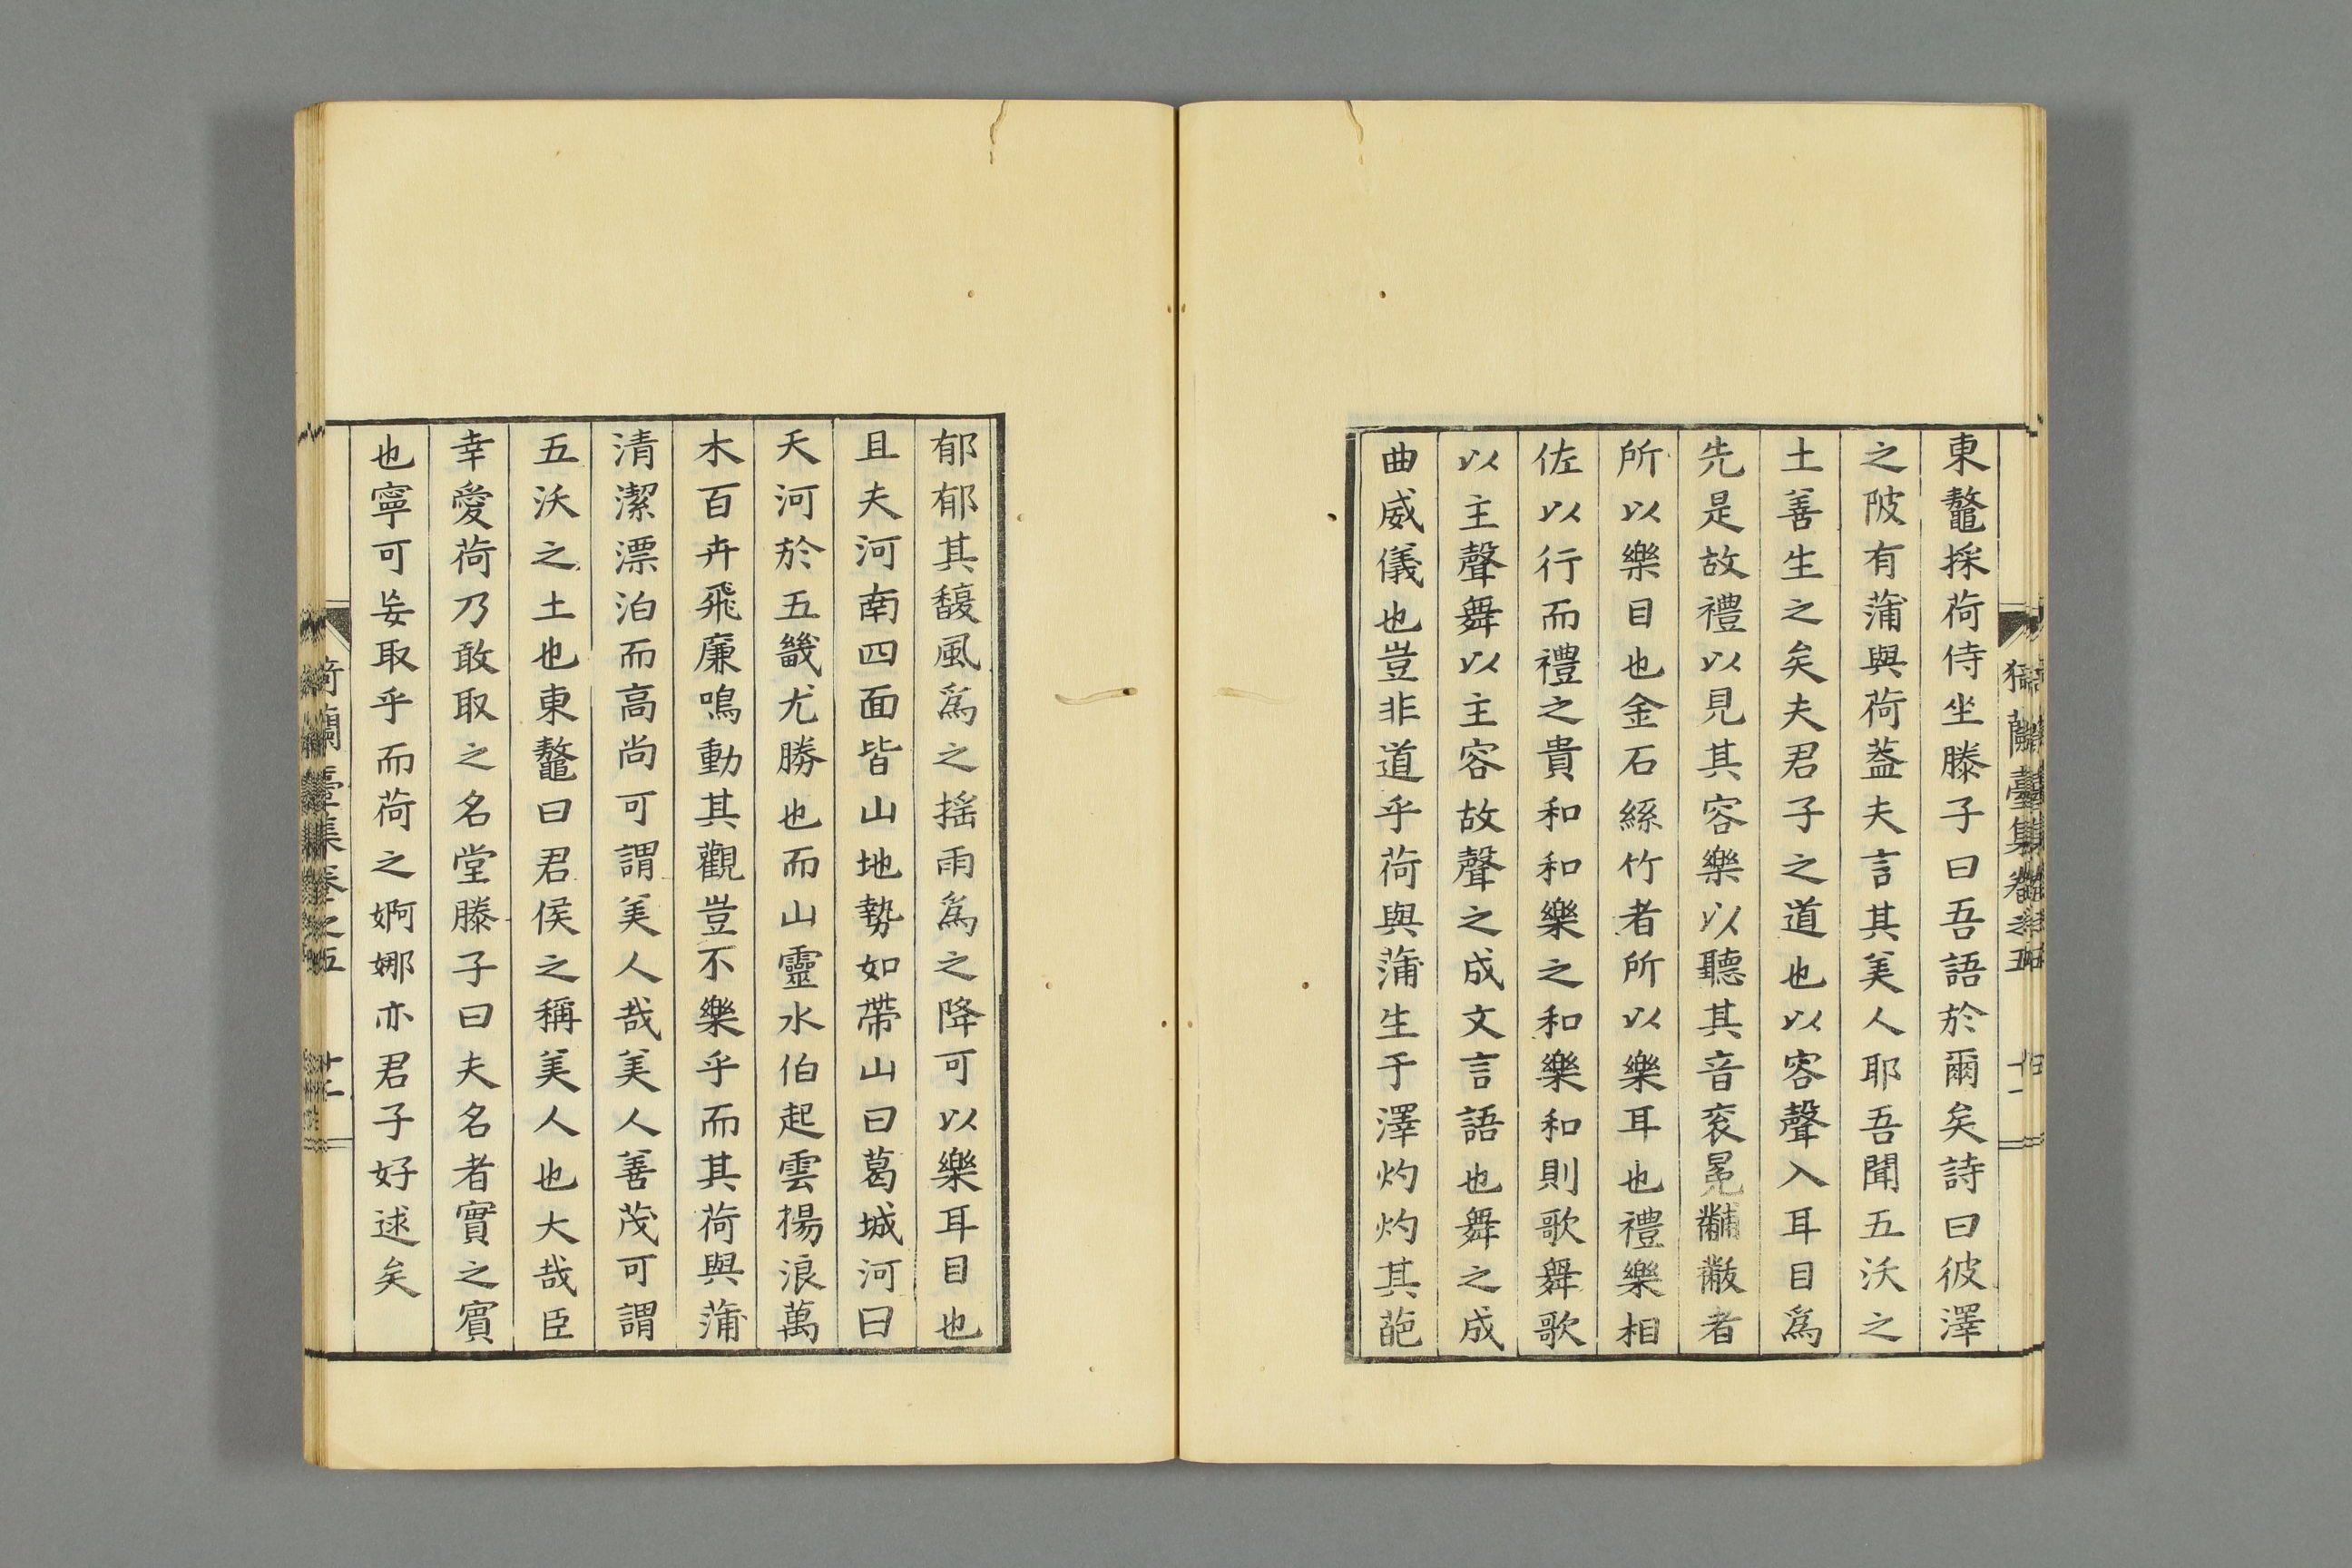 東鼇採荷侍坐滕子曰吾語於爾矣詩曰彼澤
之陂有蒲與荷葢夫言其美人耶吾聞五沃之
土善生之矣夫君子之道也以容聲入耳目爲
先是故禮以見其容樂以聽其音衮冕黼黻者
所以樂目也金石絲竹者所以樂耳也禮樂相
佐以行而禮之貴和和樂之和樂和則歌舞歌
以主聲舞以主容故聲之成文言語也舞之成
曲威儀也豈非道乎荷與蒲生于澤灼灼其葩
郁郁其馥風爲之搖雨爲之降可以樂耳目也
且夫河南四面皆山地勢如帶山曰葛城河曰
天河於五畿尤勝也而山靈水伯起雲揚浪萬
木百卉飛廉鳴動其觀豈不樂乎而其荷與蒲
清潔漂泊而高尚可謂美人哉美人善茂可謂
五沃之土也東鼇曰君侯之稱美人也大哉臣
幸愛荷乃敢取之名堂滕子曰夫名者實之賓
也寧可妄取乎而荷之婀娜亦君子好逑矣
猗蘭臺集卷之五